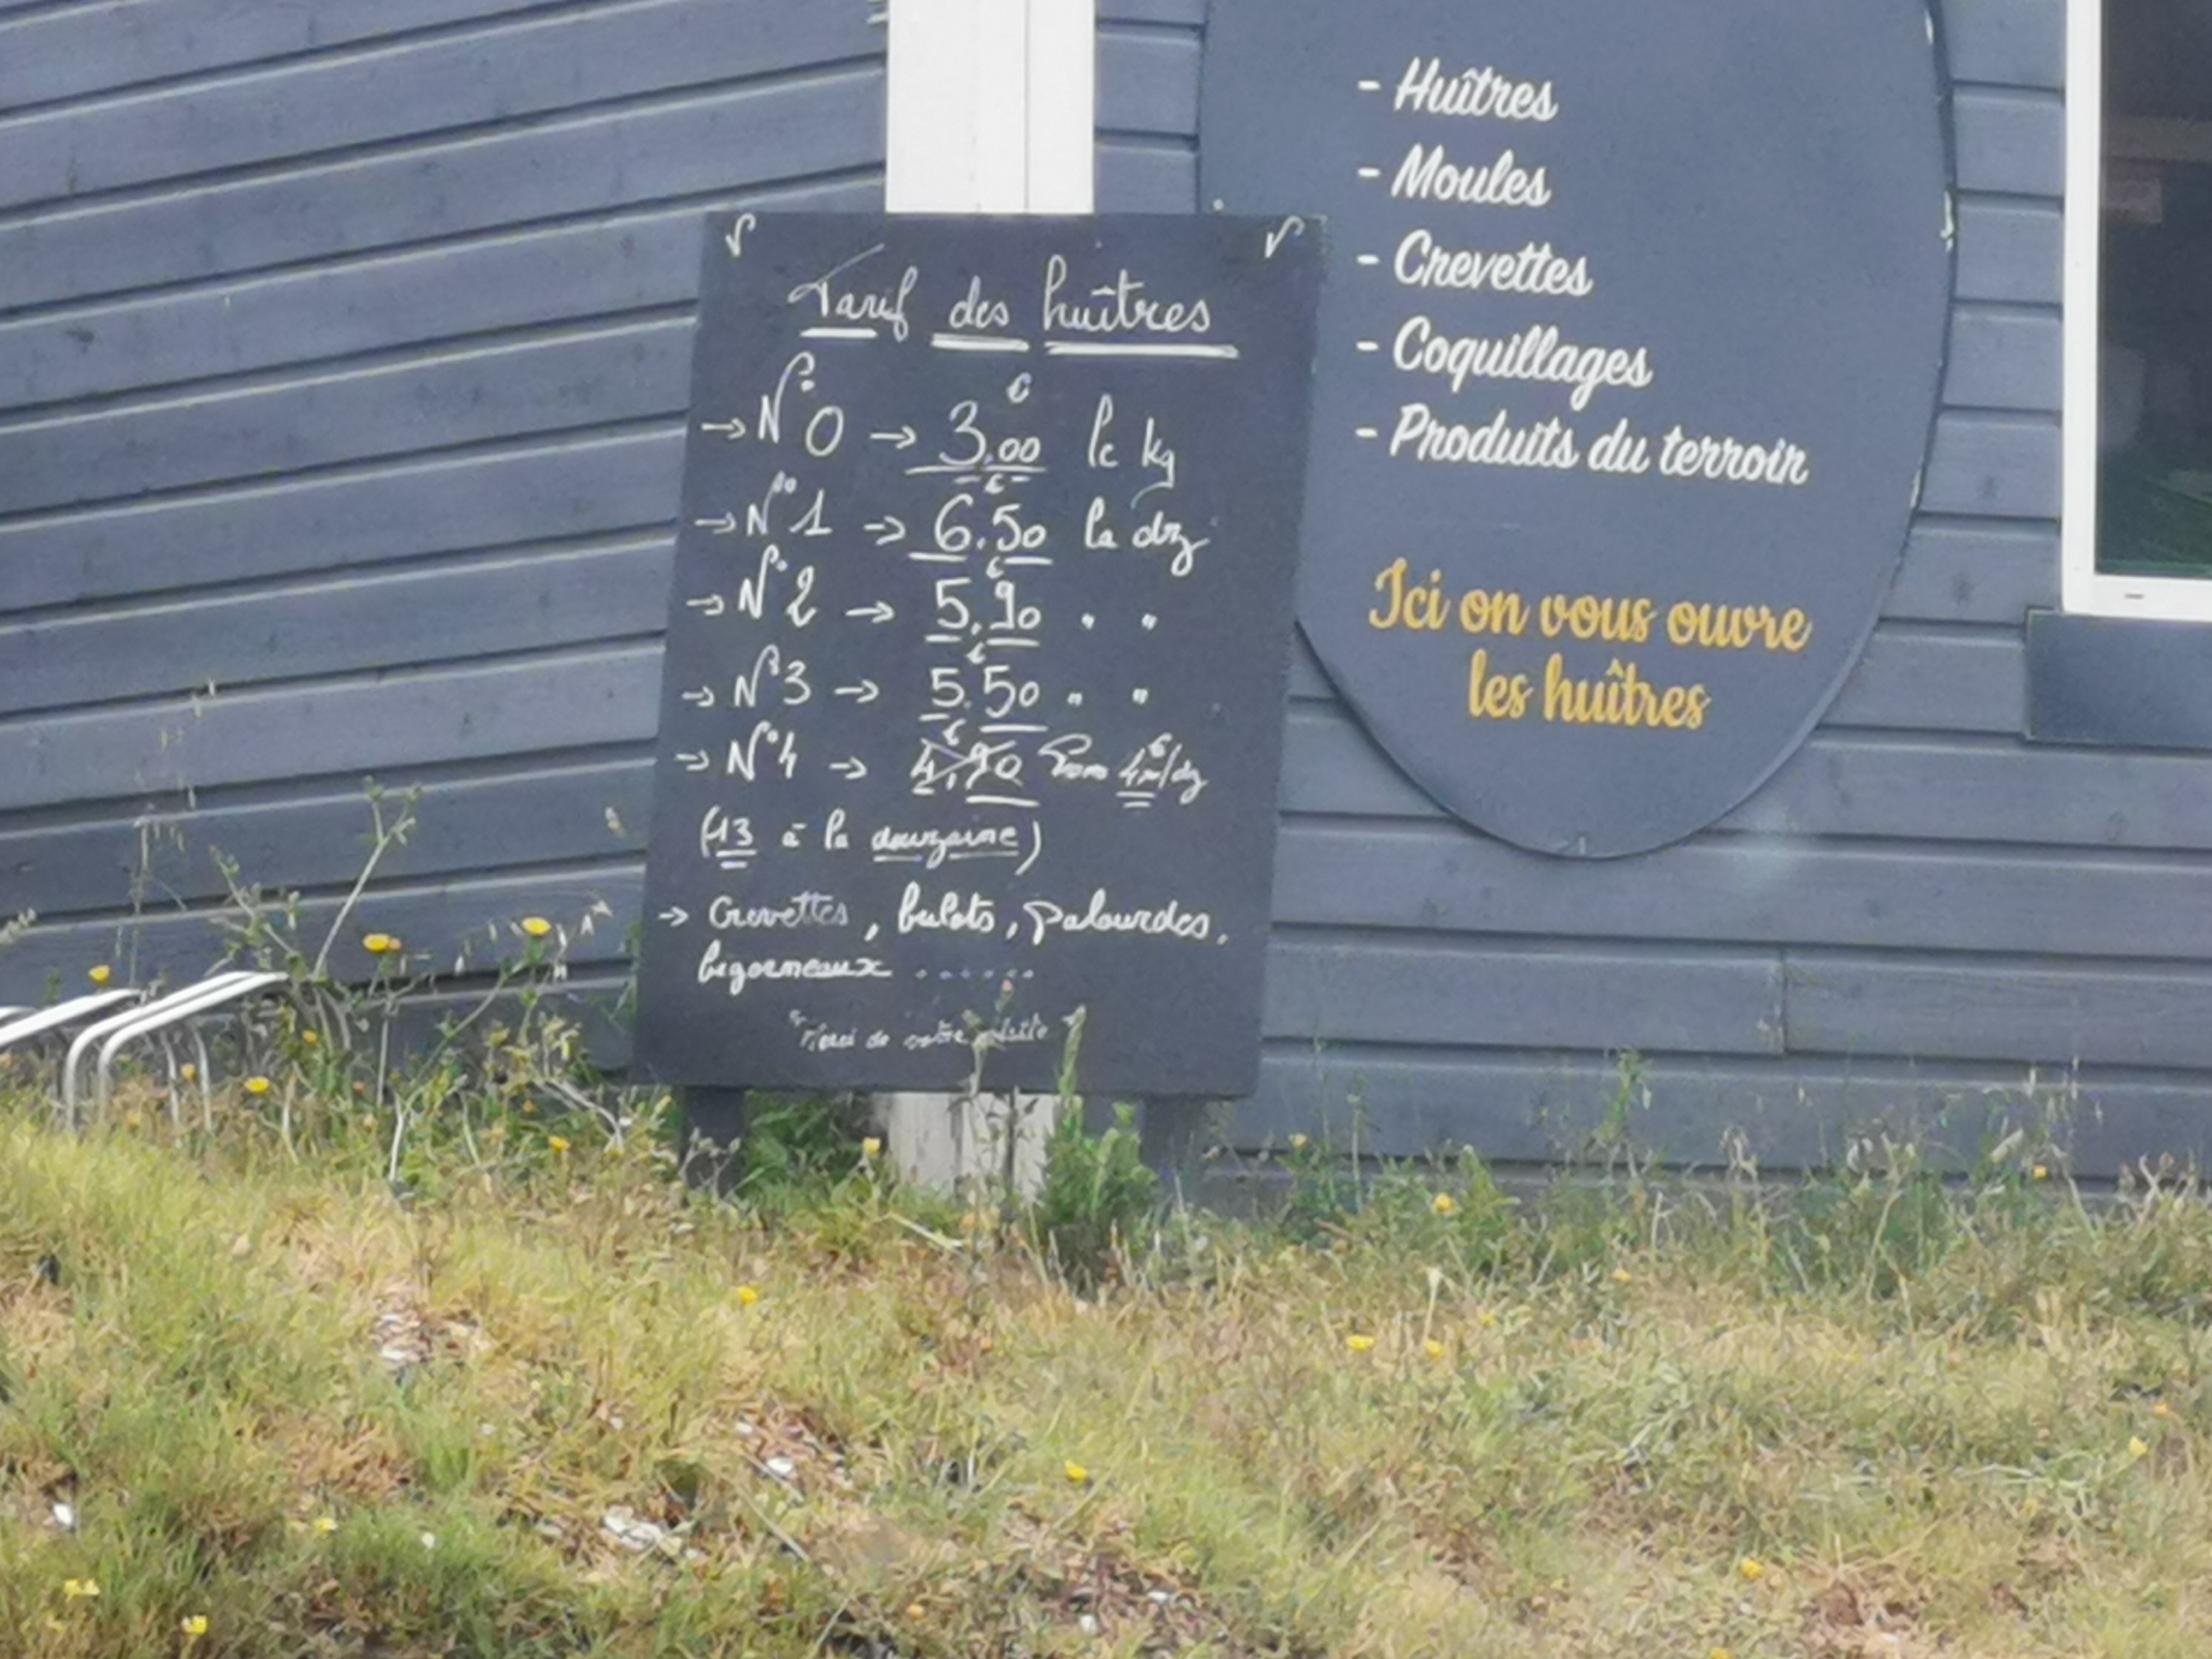 Tarif des huîtres
→ N°0 → 3,00 € le kg
→ N°1 → 6,50 € la dz
→ N°2 → 5,90 € " "
→ N°3 → 5,50 € " "
→ N°4 → 4,90 € Promo 4 €/dz
(13 à la douzaine)
→ Crevettes, bulots, palourdes,
bigorneaux ......
"Merci de votre visite"
- Huîtres
- Moules
- Crevettes
- Coquillages
- Produits du terroir
Ici on vous ouvre
les huîtres